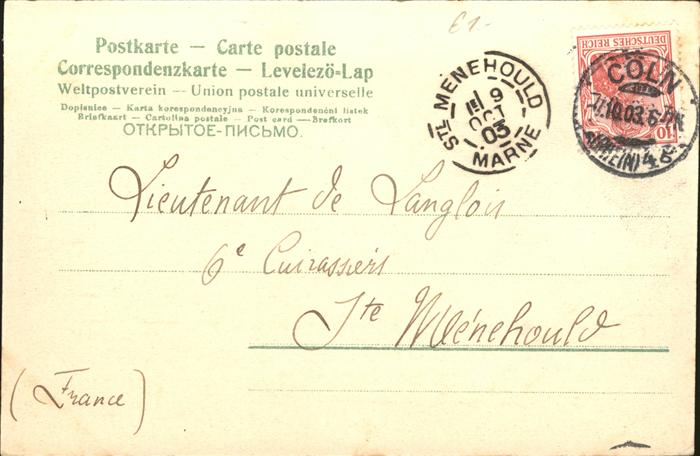 £1-
Postkarte — Carte postale
Correspondenzkarte — Levelezö-Lap
Weltpostverein — Union postale universelle
Dopisnice — Karta korespondencyjna — Korespondenční listek
Briefkaart — Cartolina postale — Post card — Brefkort
ОТКРЫТОЕ-ПИСЬМО.
STE MENEHOULD
9
OCT
03
MARNE
DEUTSCHES REICH
10
CÖLN
7.10.03. 6-7N
(RHEIN) 4
Lieutenant de Langlois
6e Cuirassiers
Ste Ménehould
(France)